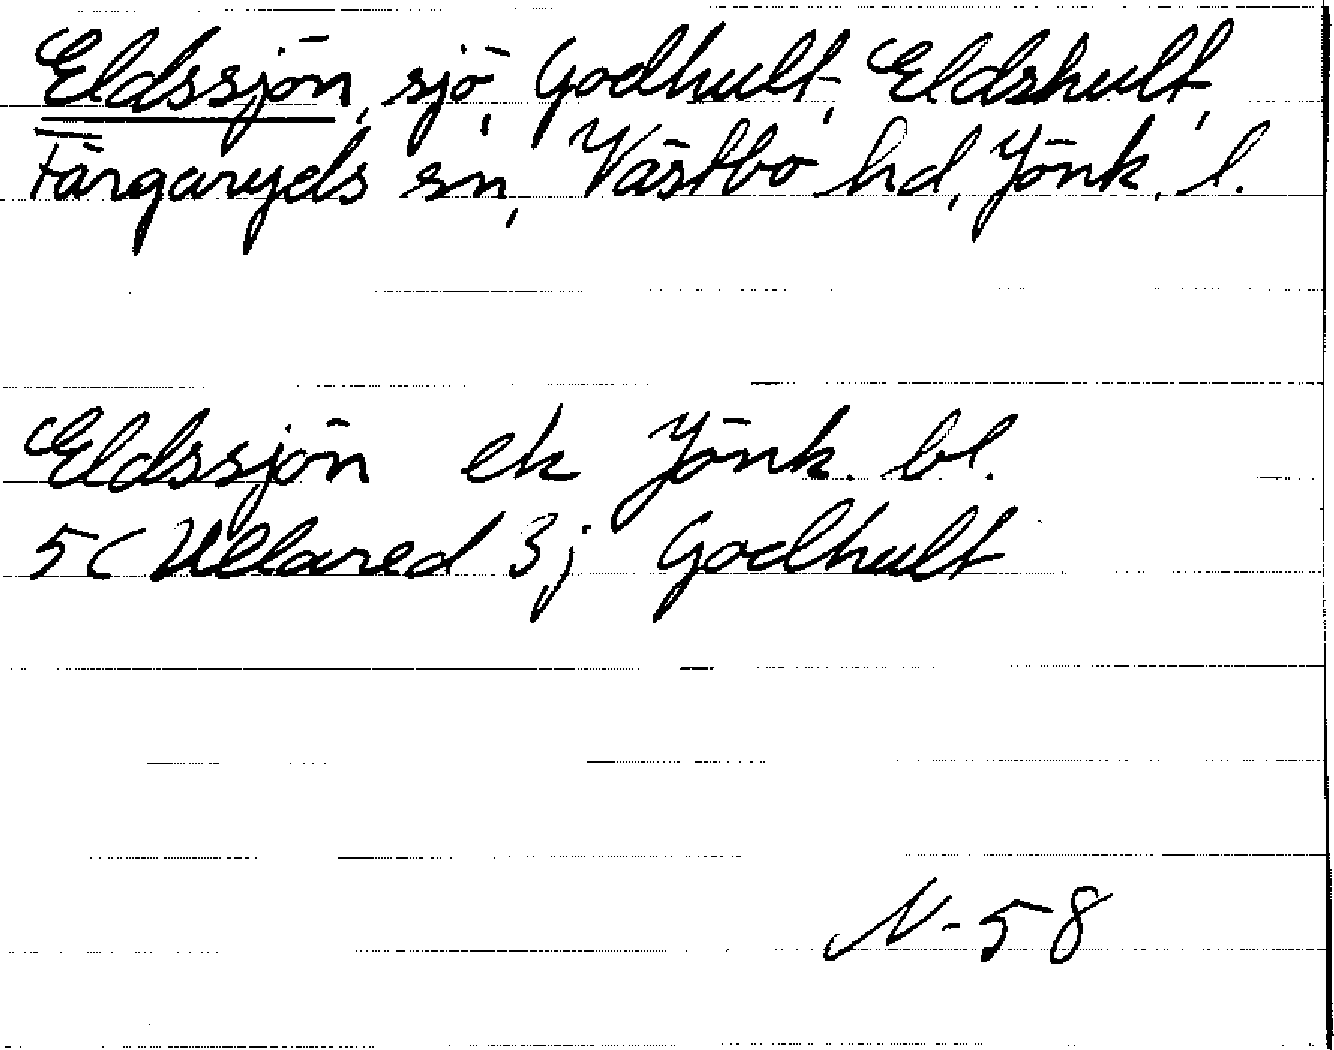 Eldssjön, sjö, Godhult, Eldshult,
Färgaryds sn, Västbo hd, Jönk. l.
Eldssjön ek Jönk. bl.
5C Ullared 3j Godhult
N-58